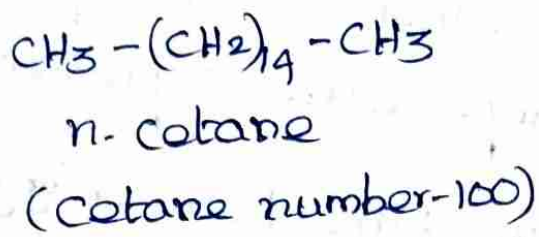 CH3-(CH2)14-CH3
n-cetane
(cetane number-100)